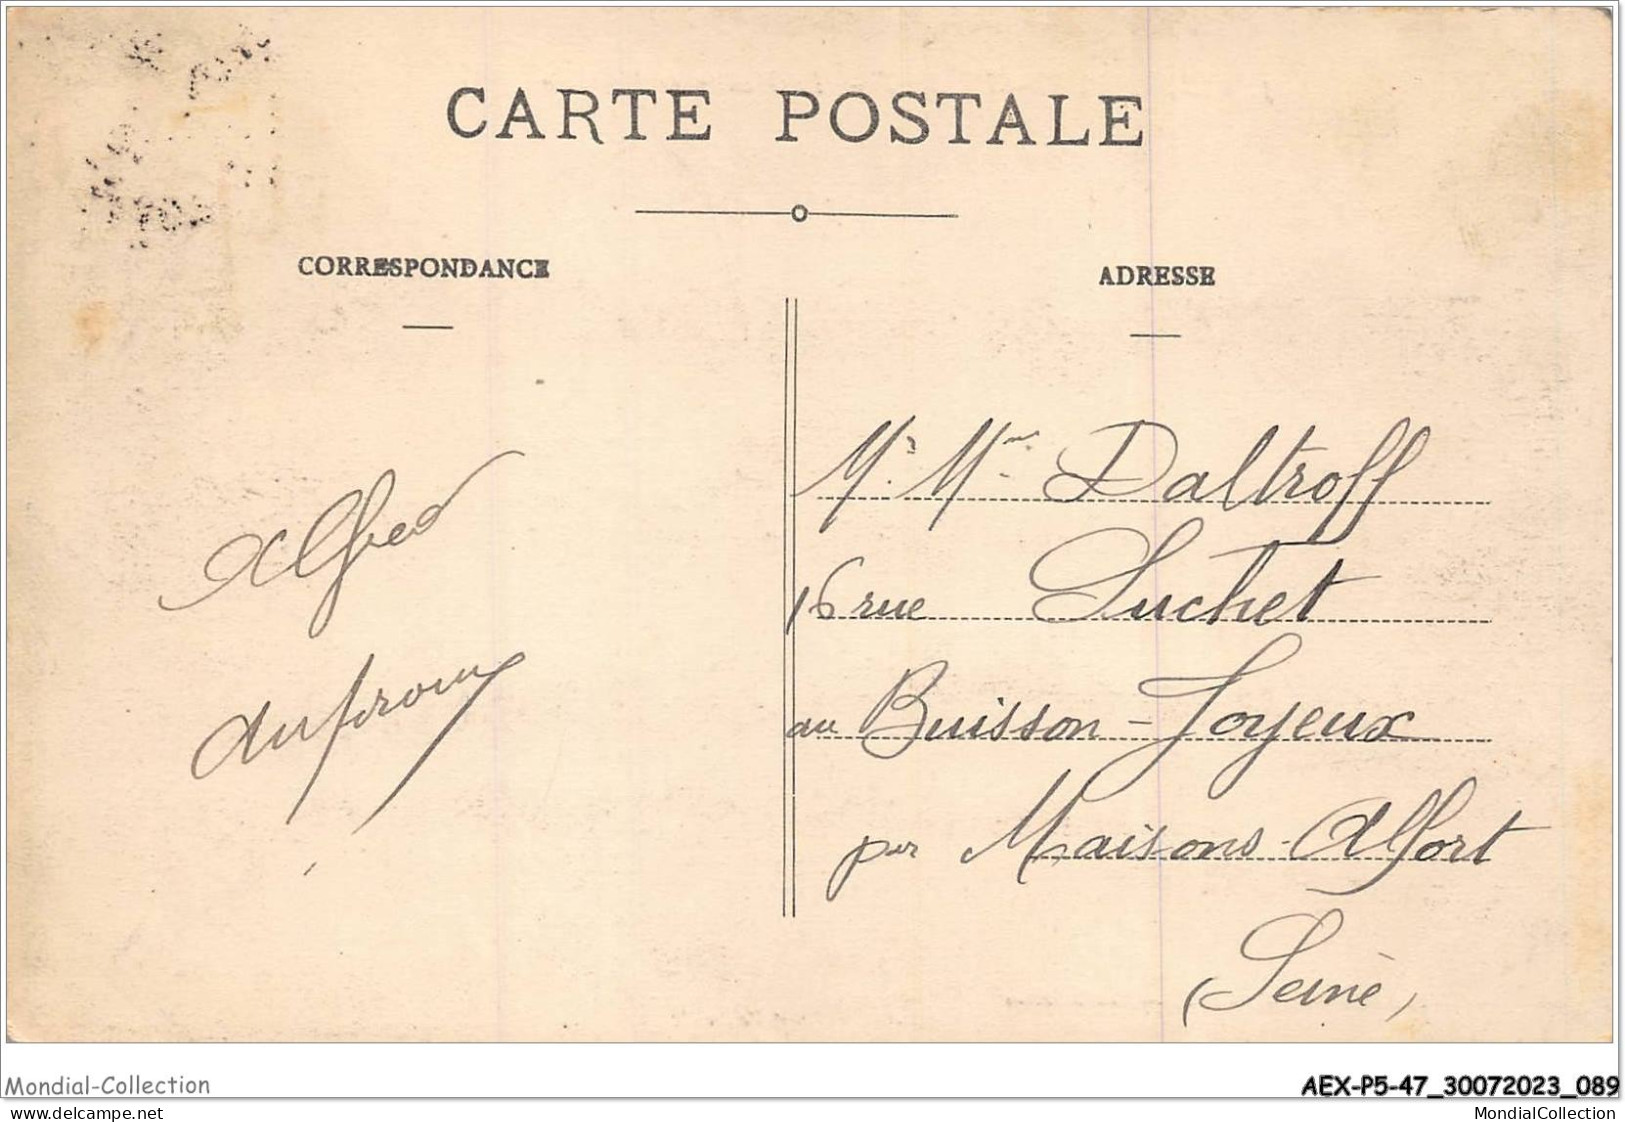 CARTE POSTALE
CORRESPONDANCE
ADRESSE
Alfred
Mr. Mme Daltroff
16 rue Suchet
au Buisson-Joyeux
par Maisons-Alfort
(Seine)
Mondial-Collection
AEX-P5-47_30072023_089
www.delcampe.net
MondialCollection